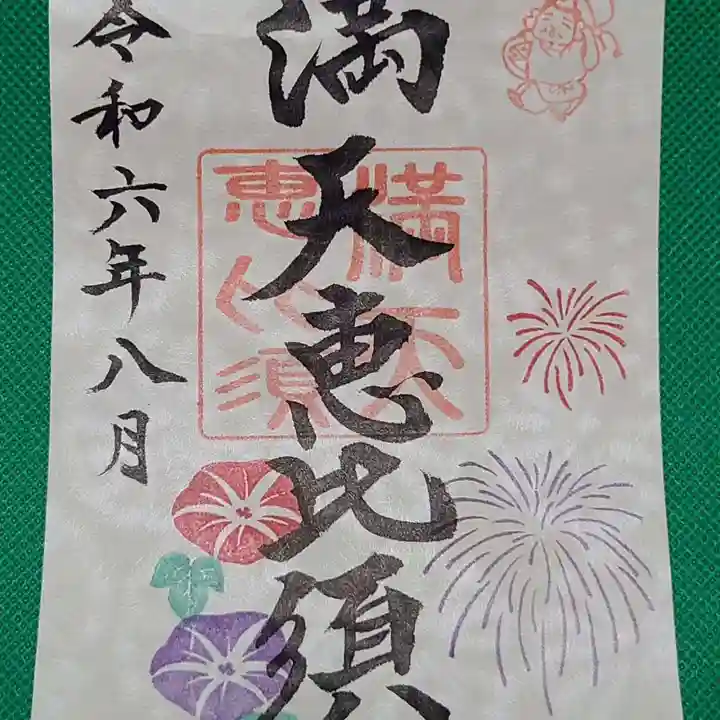 満天恵比須
満天
恵比須
令和六年八月